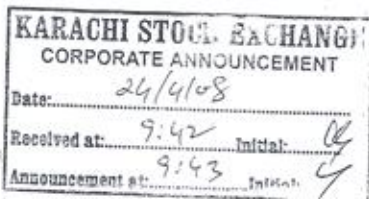 KARACHI STOCK EXCHANGE
CORPORATE ANNOUNCEMENT
Date: 24/4/08
Received at: 9:42 Initial:
Announcement at: 9:43 Initial: